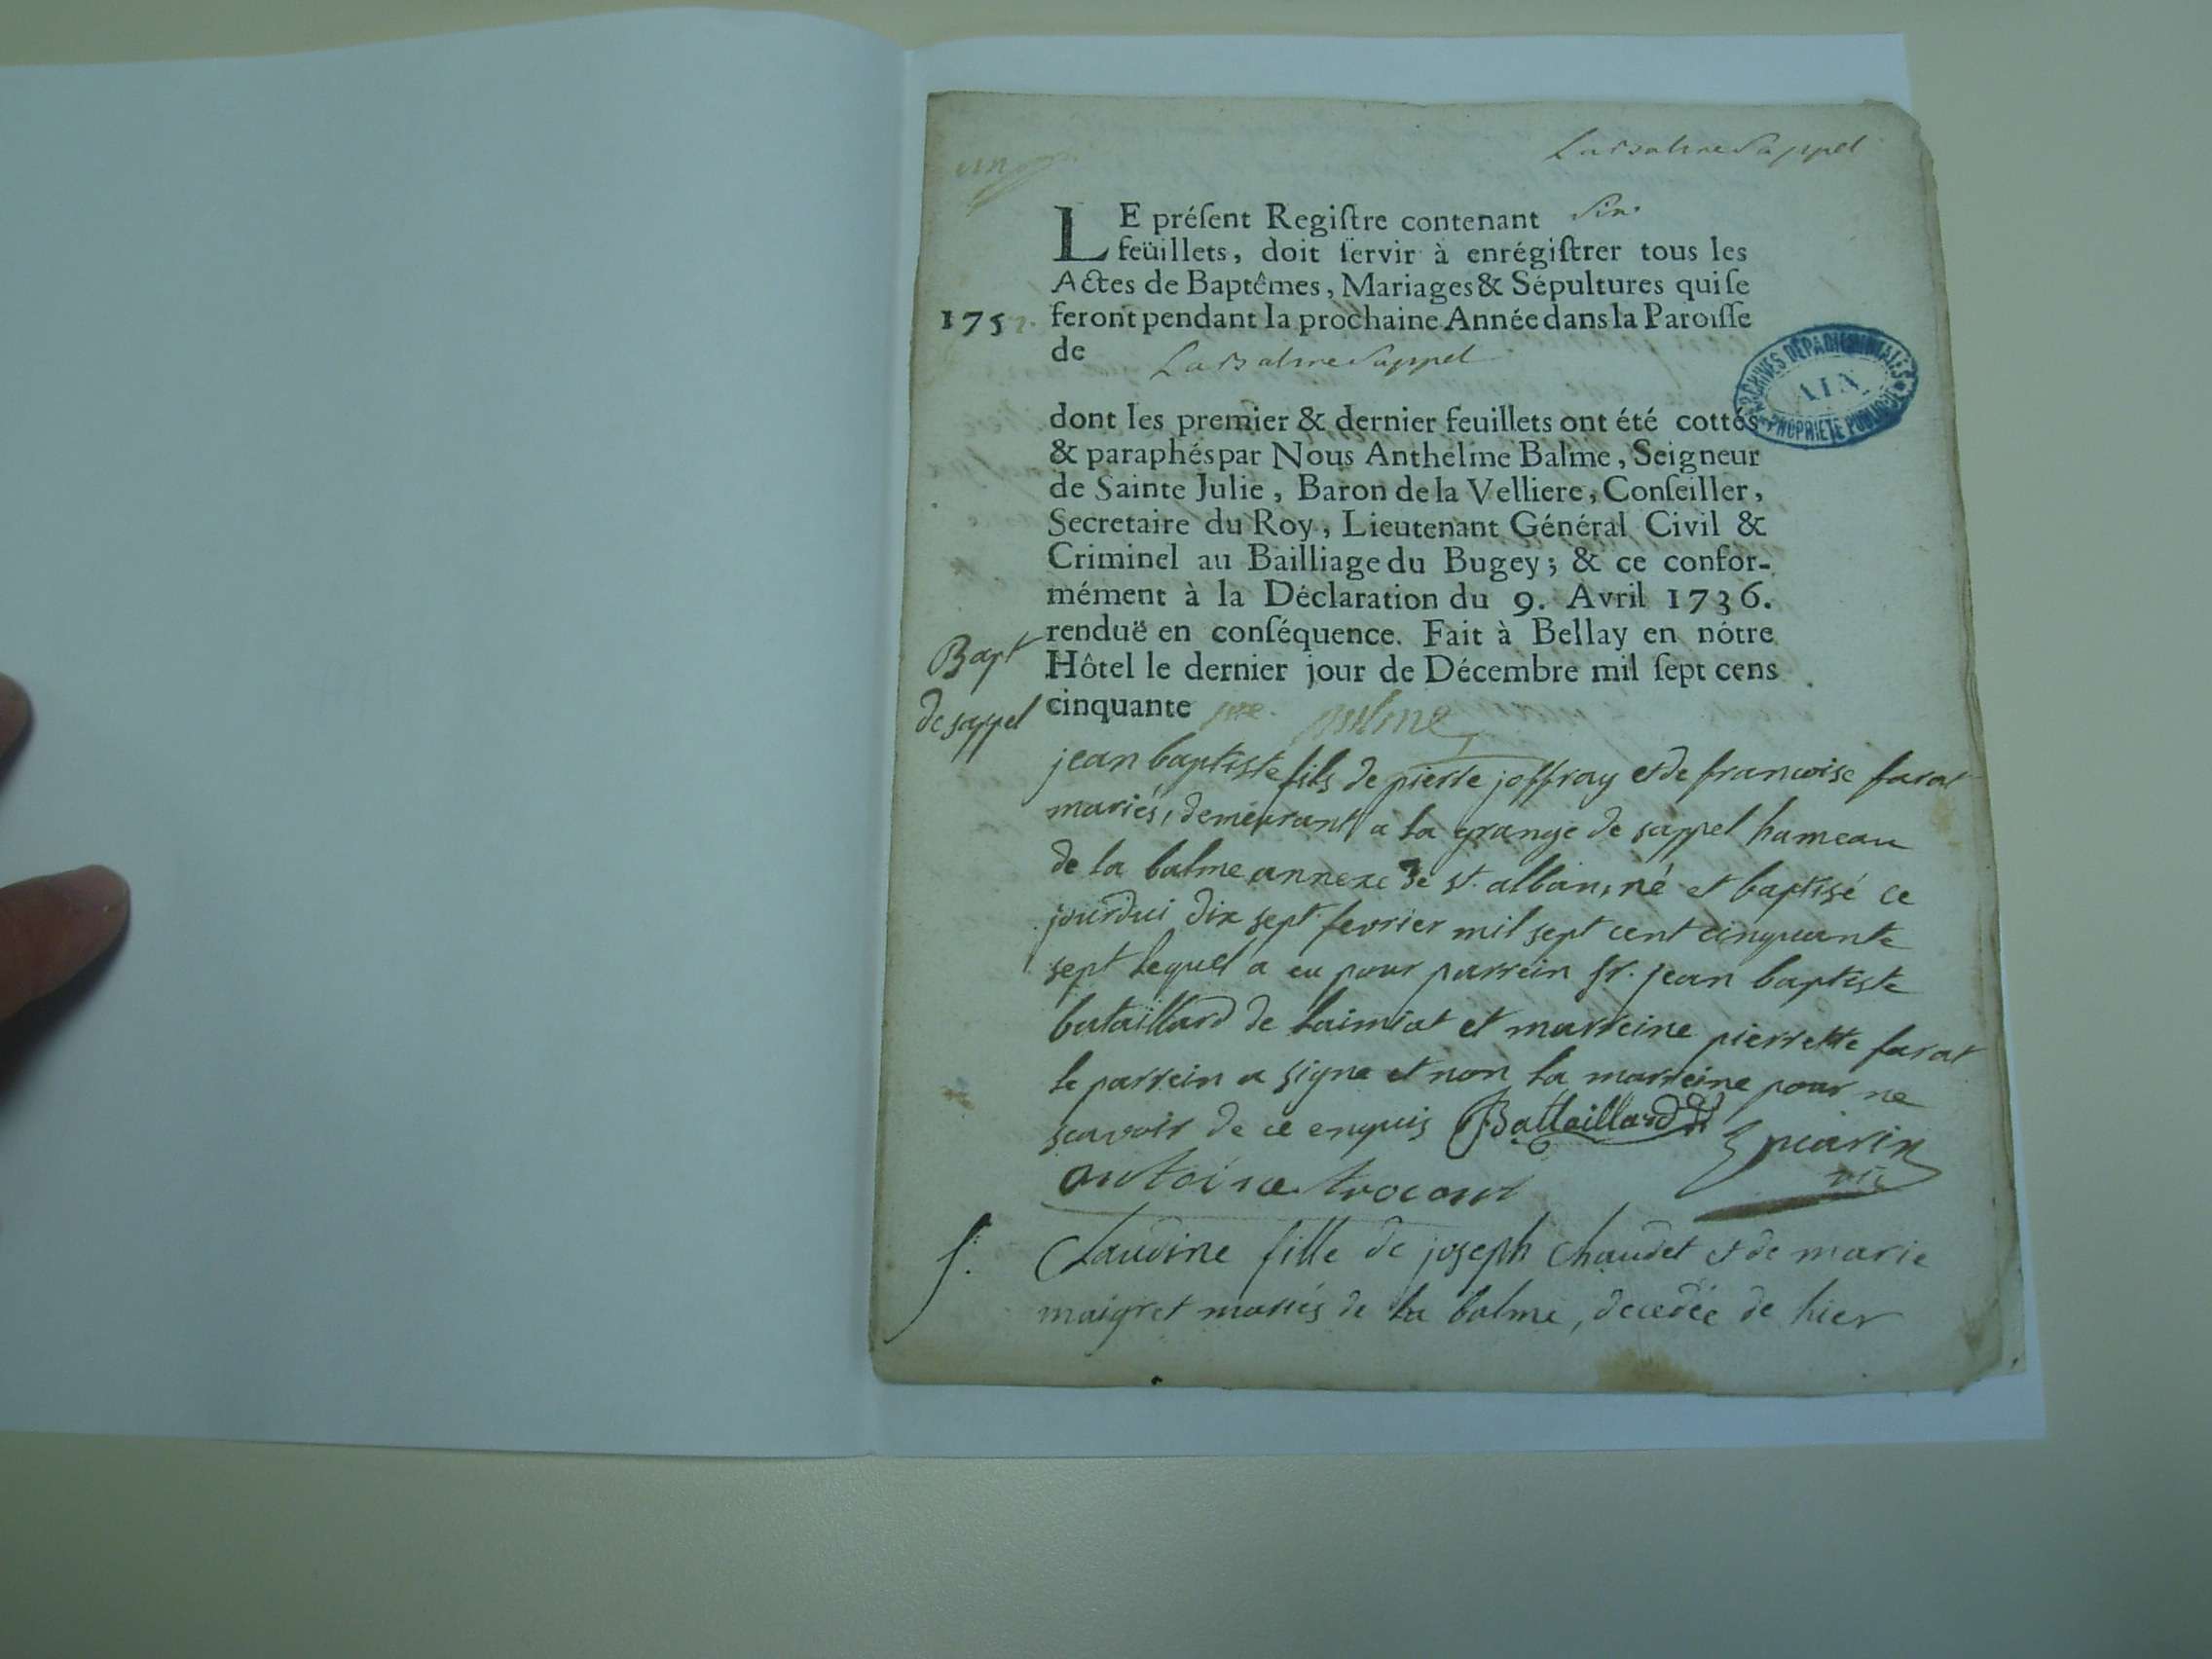 un
La Balme Sappel
LE préſent Regiſtre contenant Six
feüillets, doit ſervir à enrégiſtrer tous les
Actes de Baptêmes, Mariages & Sépultures qui ſe
175 feront pendant la prochaine Année dans la Paroiſſe
de La Balme Sappel
ARCHIVES DÉPARTEMENTALES
AIN
PROPRIÉTÉ PUBLIQUE
dont les premier & dernier feuillets ont été cottés
& paraphés par Nous Anthelme Balme, Seigneur
de Sainte Julie, Baron de la Velliere, Conſeiller,
Secretaire du Roy, Lieutenant Général Civil &
Criminel au Bailliage du Bugey; & ce confor-
mément à la Déclaration du 9. Avril 1736.
renduë en conſéquence. Fait à Bellay en nôtre
Hôtel le dernier jour de Décembre mil ſept cens
cinquante Balme
Bapt
de sappel
jean baptiste fils de pierre joffray et de francoise farat
mariés, demeurant a la grange de sappel hameau
de la balme annexe de st. alban, né et baptisé ce
jourdui dix sept fevrier mil sept cent cinquante
sept lequel a eu pour parrein sr. jean baptiste
bataillard de et marreine pierrette farat
le parrein a signe et non la marreine pour ne
scavoir de ce enquis Battaillard
antoine
S. Claudine fille de joseph Chaudet et de marie
maigret mariés de la balme, decedée de hier